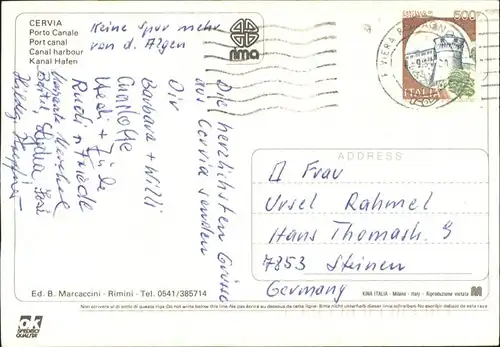 CERVIA
Porto Canale
Port canal
Canal harbour
Kanal Hafen
rima
Keine Spur mehr
von d. Algen
Die herzlichsten Grüsse
aus Cervia senden
Dir
Barbara + Willi
Charlotte
Hedi +
Rudi + Friede
500
ITALIA
RIVIERA
ADDRESS
Frau
Ursel Rahmel
Hans Thomastr. 9
7853 Steinen
Germany
Ed. B. Marcaccini - Rimini - Tel. 0541/385714
KINA ITALIA - Milano - Italy - Riproduzione vietata
Non scrivere al di sotto di questa riga Do not write below this line. Ne pas écrire au dessous de cette ligne. Bitte nicht unterhalb dieser linie schreiben No escribir debajo de esta raya
OK
SPEDISCI
QUALITA'